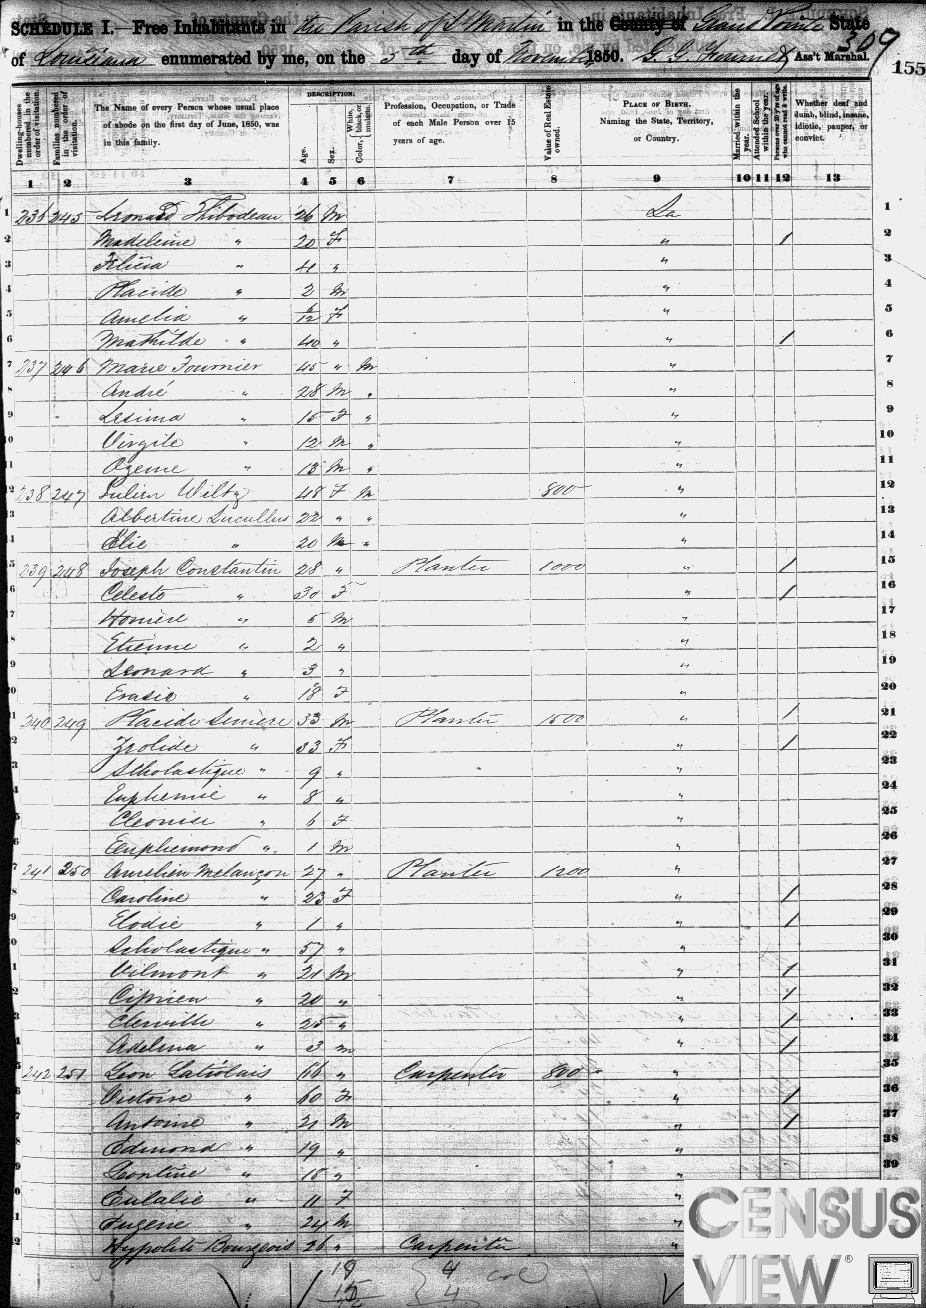 SCHEDULE I.—Free Inhabitants in the Parish of St Martin in the County of Grand Pointe State
of Louisiana enumerated by me, on the 5th day of November 1850. G. G. Ass't Marshal. 309
155
DESCRIPTION.
Dwelling-houses numbered in the order of visitation.
Families numbered in the order of visitation.
The Name of every Person whose usual place of abode on the first day of June, 1850, was in this family.
Age.
Sex.
Color, White, black, or mulatto.
Profession, Occupation, or Trade of each Male Person over 15 years of age.
Value of Real Estate owned.
PLACE OF BIRTH. Naming the State, Territory, or Country.
Married within the year.
Attended School within the year.
Persons over 20 y'rs of age who cannot read & write.
Whether deaf and dumb, blind, insane, idiotic, pauper, or convict.
1 2 3 4 5 6 7 8 9 10 11 12 13
1 236 245 Leonard Thibodeau 26 M La 1
2 Madeleine " 20 F " / 2
3 Felicia " 4 " " 3
4 Placide " 2 M " 4
5 Amelia " 6/12 F " 5
6 Mathilde " 40 " " / 6
7 237 246 Marie Fournier 45 " M " 7
8 André " 28 M " " 8
9 Lesima " 15 F " " 9
10 Virgile " 12 M " " 10
11 Ozeme " 13 M " " 11
12 238 247 Julien Wiltz 48 F M 800 " 12
13 Albertine Lucullus 22 " " " 13
14 Elie " 20 M " " 14
15 239 248 Joseph Constantin 28 " Planter 1000 " / 15
16 Celeste " 30 F " / 16
17 Homère " 5 M " 17
18 Etienne " 2 " " 18
19 Leonard " 3 " " 19
20 Erasie " 18 F " 20
21 240 249 Placide 33 M Planter 1500 " / 21
22 Zeolide " 33 F " / 22
23 Scholastique " 9 " " 23
24 Euphemie " 8 " " 24
25 Cleonise " 6 F " 25
26 Euphemond " 1 M " 26
27 241 250 Aurelien Melançon 27 " Planter 1200 " 27
28 Caroline " 23 F " / 28
29 Elodie " 1 " " / 29
30 Scholastique " 57 " " 30
31 Vilmont " 21 M " / 31
32 Ciprien " 20 " " / 32
33 Clerville " 25 " " / 33
34 Adelina " 3 m " / 34
35 242 251 Leon Latiolais 66 " Carpenter 800 " 35
36 Victoire " 60 F " / 36
37 Antoine " 21 M " / 37
38 Edmond " 19 " " 38
39 Leontine " 18 " " 39
Eulalie " 11 F "
Eugene " 24 M "
Hypolite Bourgeois 26 " Carpenter "
19 4 col
15 4
CENSUS
VIEW®